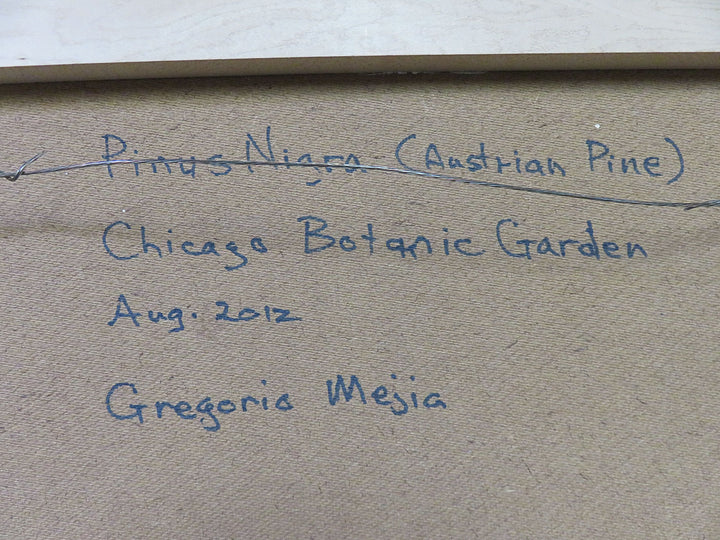 Pinus Nigra (Austrian Pine)
Chicago Botanic Garden
Aug. 2012
Gregorio Mejia